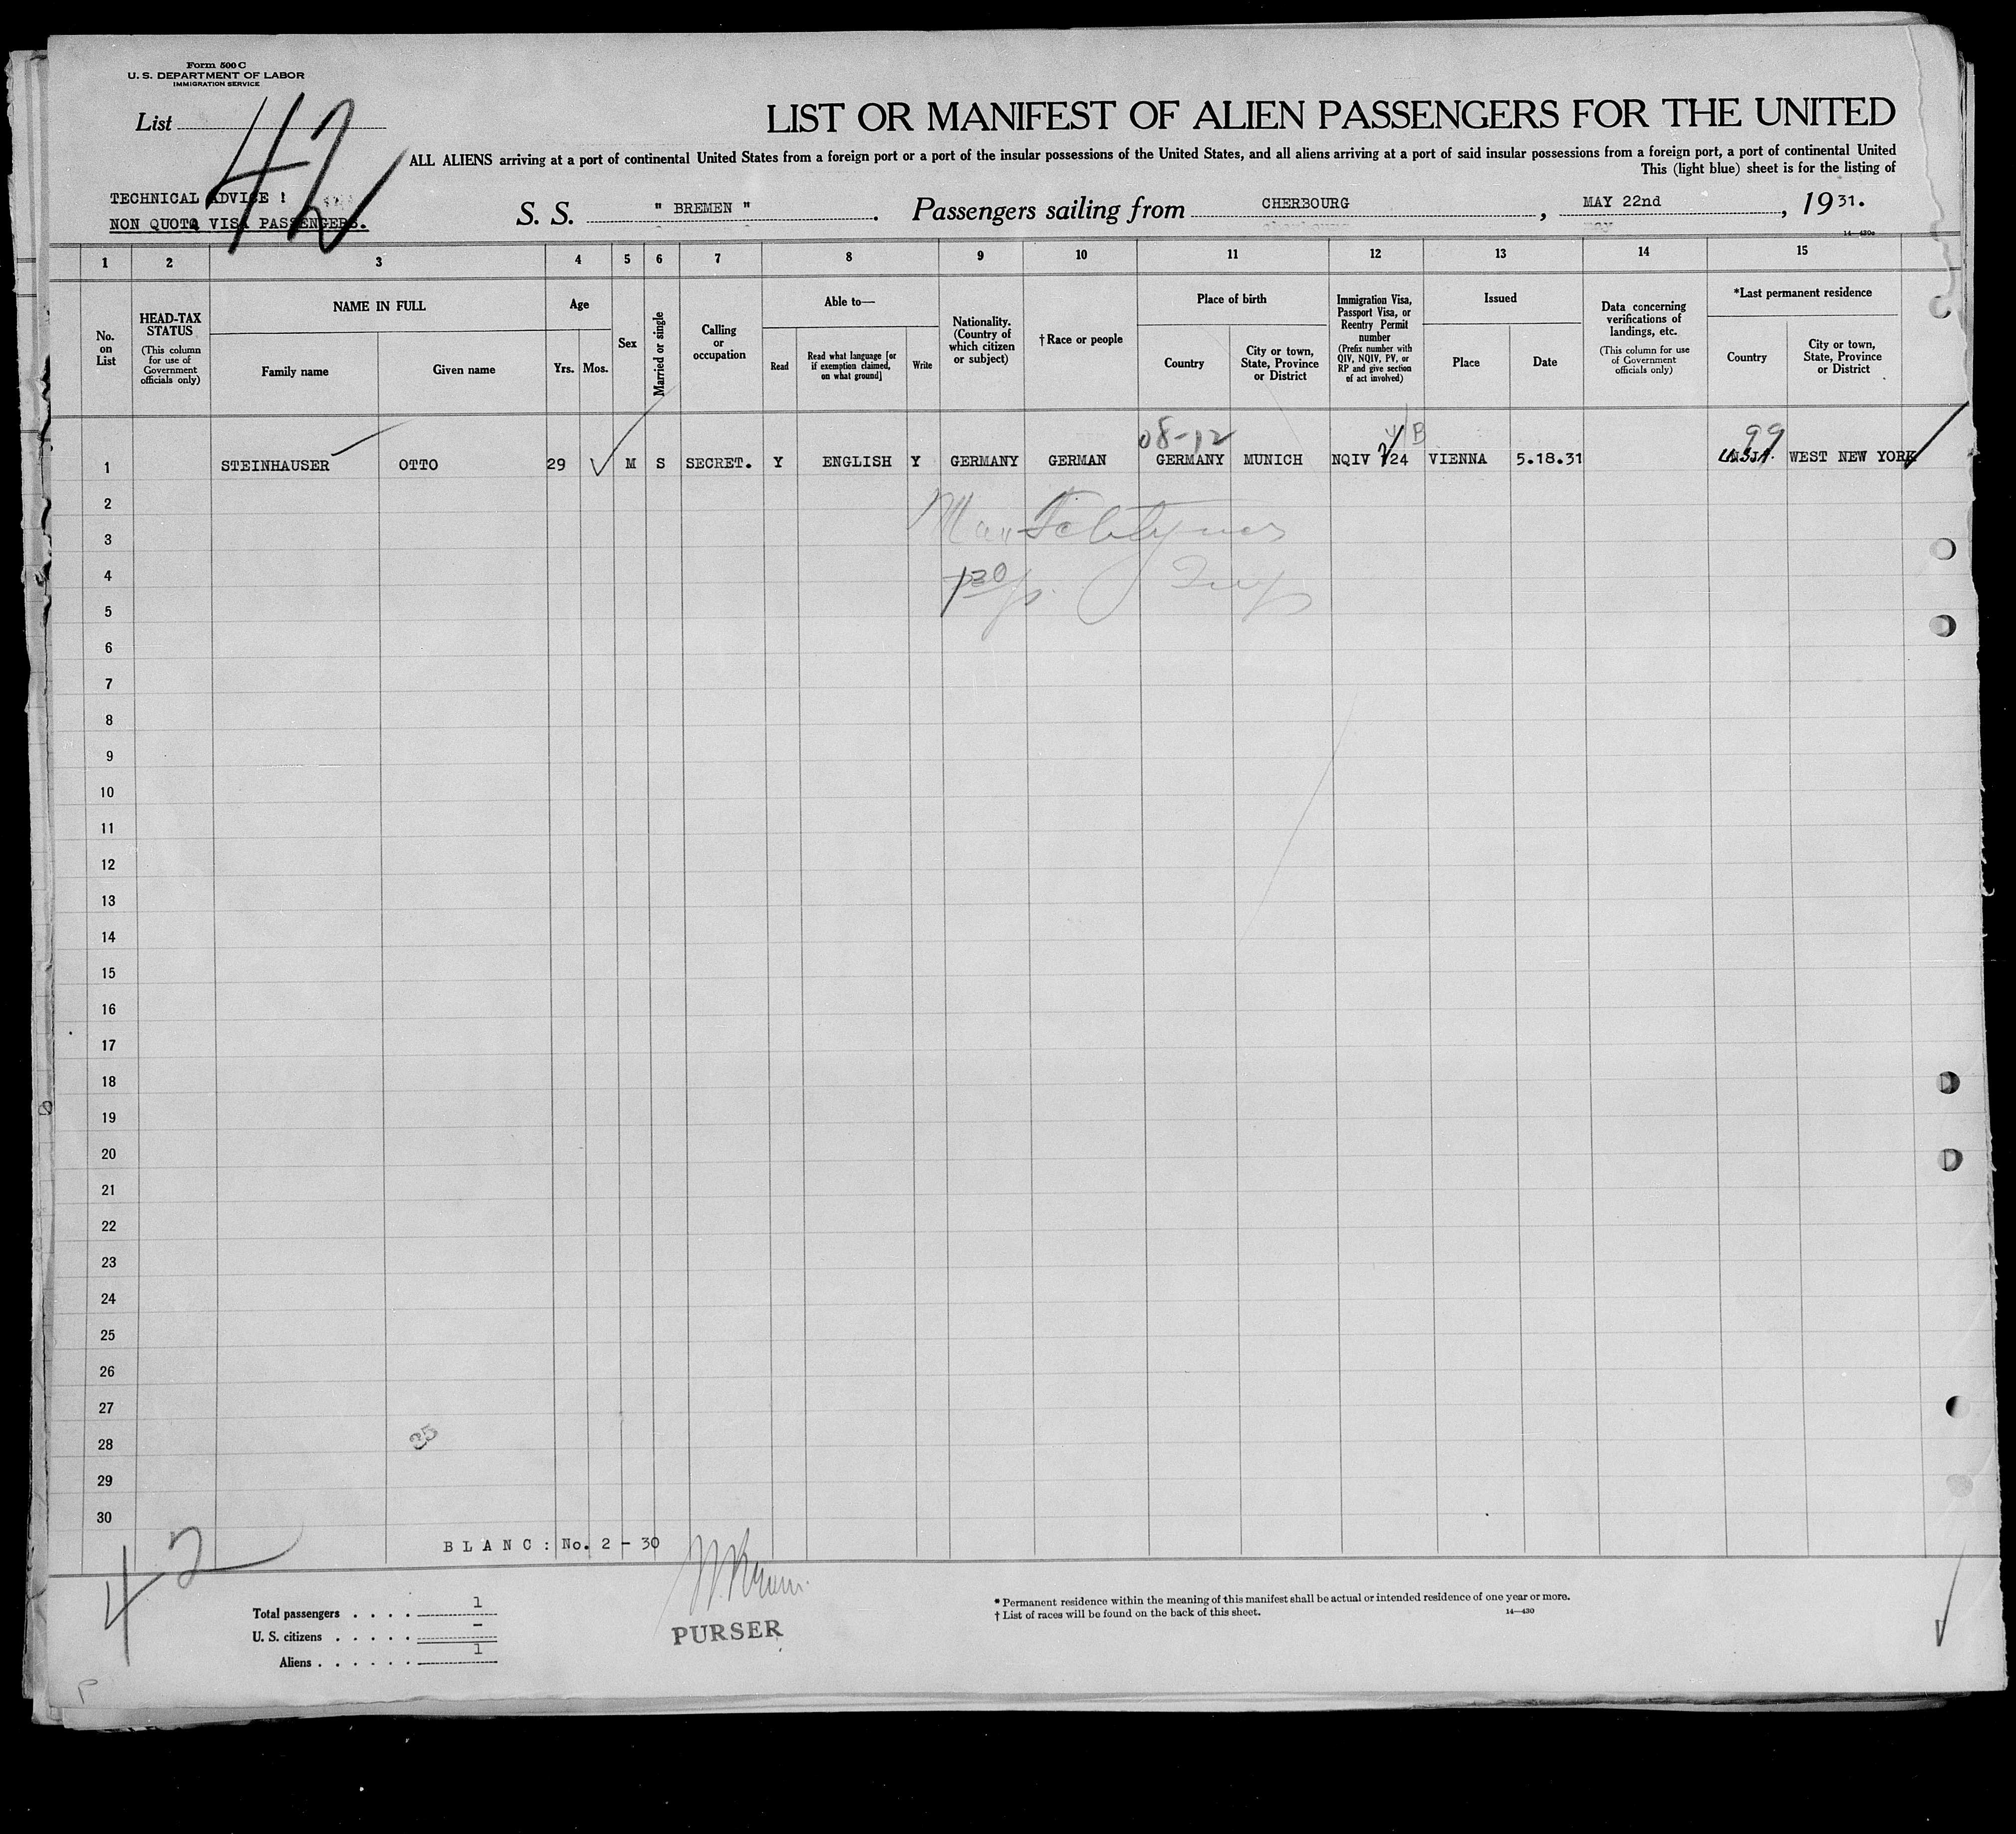 Form 500 C
U. S. DEPARTMENT OF LABOR
IMMIGRATION SERVICE
List 42
LIST OR MANIFEST OF ALIEN PASSENGERS FOR THE UNITED
ALL ALIENS arriving at a port of continental United States from a foreign port or a port of the insular possessions of the United States, and all aliens arriving at a port of said insular possessions from a foreign port, a port of continental United
This (light blue) sheet is for the listing of
TECHNICAL ADVICE !
NON QUOTA VISA PASSENGERS.
S. S. " BREMEN " . Passengers sailing from CHERBOURG , MAY 22nd , 19 31.
14—430a
1 2 3 4 5 6 7 8 9 10 11 12 13 14 15
No. on List
HEAD-TAX STATUS
(This column for use of Government officials only)
NAME IN FULL
Family name
Given name
Age
Yrs. Mos.
Sex
Married or single
Calling or occupation
Able to—
Read
Read what language [or if exemption claimed, on what ground]
Write
Nationality. (Country of which citizen or subject)
† Race or people
Place of birth
Country
City or town, State, Province or District
Immigration Visa, Passport Visa, or Reentry Permit number
(Prefix number with QIV, NQIV, PV, or RP and give section of act involved)
Issued
Place
Date
Data concerning verifications of landings, etc.
(This column for use of Government officials only)
*Last permanent residence
Country
City or town, State, Province or District
08-12 4/B 99
1 STEINHAUSER OTTO 29 M S SECRET. Y ENGLISH Y GERMANY GERMAN GERMANY MUNICH NQIV 24 VIENNA 5.18.31 WEST NEW YORK
2
3
4
5
6
7
8
9
10
11
12
13
14
15
16
17
18
19
20
21
22
23
24
25
26
27
28
35
29
30
BLANC: No. 2 - 30
42
Total passengers . . . . 1
U. S. citizens . . . . . -
Aliens . . . . . . 1
PURSER
* Permanent residence within the meaning of this manifest shall be actual or intended residence of one year or more.
† List of races will be found on the back of this sheet.
14—430
P